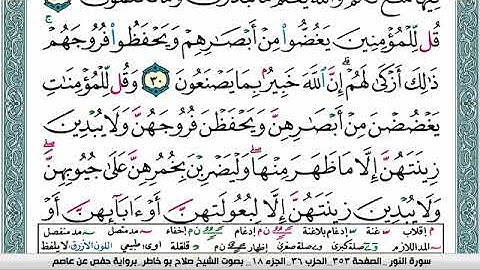 فِيهَا مَتَٰعٌ لَّكُمْ وَٱللَّهُ يَعْلَمُ مَا تُبْدُونَ وَمَا تَكْتُمُونَ
قُل لِّلْمُؤْمِنِينَ يَغُضُّوا۟ مِنْ أَبْصَٰرِهِمْ وَيَحْفَظُوا۟ فُرُوجَهُمْ
ذَٰلِكَ أَزْكَىٰ لَهُمْ ۗ إِنَّ ٱللَّهَ خَبِيرٌۢ بِمَا يَصْنَعُونَ ٣٠ وَقُل لِّلْمُؤْمِنَٰتِ
يَغْضُضْنَ مِنْ أَبْصَٰرِهِنَّ وَيَحْفَظْنَ فُرُوجَهُنَّ وَلَا يُبْدِينَ
زِينَتَهُنَّ إِلَّا مَا ظَهَرَ مِنْهَا ۖ وَلْيَضْرِبْنَ بِخُمُرِهِنَّ عَلَىٰ جُيُوبِهِنَّ ۖ
وَلَا يُبْدِينَ زِينَتَهُنَّ إِلَّا لِبُعُولَتِهِنَّ أَوْ ءَابَآئِهِنَّ أَوْ
م إقلاب غنة إدغام بلاغنة ن م إدغام ن م إخفاء مد متصل مد منفصل
المد اللازم صلة كبرى صلة صغرى إظهار ن م قلقلة اوى: طبيعي اللون الأزرق: لا يلفظ
سورة النور _ الصفحة ٣٥٣ _ الحزب ٣٦ _ الجزء ١٨ _ بصوت الشيخ صلاح بو خاطر _ برواية حفص عن عاصم